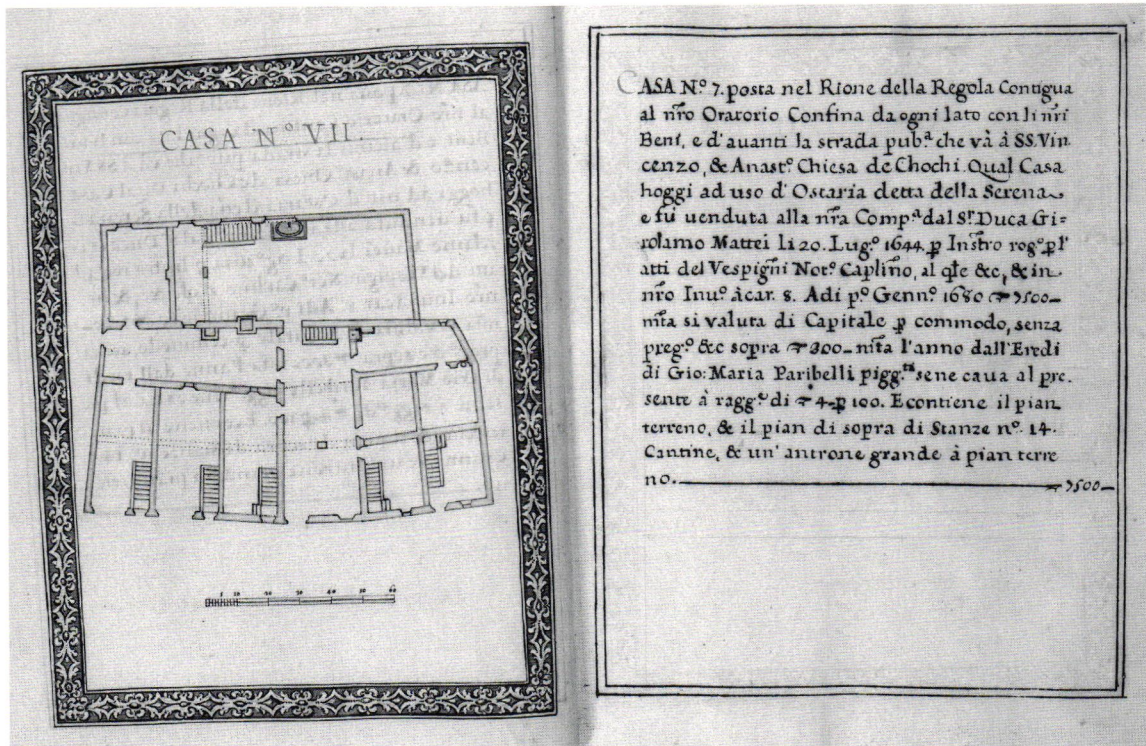 CASA Nº VII.
5 10 20 30 40 50 60
CASA N.º 7. posta nel Rione della Regola Contigua
al nr̃o Oratorio Confina da ogni lato con li nr̃i
Beni, e d'auanti la strada pub.ª che và à SS. Vin-
cenzo, & Anast.º Chiesa de Chochi. Qual Casa
hoggi ad uso d'Ostaria detta della Serena
e fù uenduta alla nr̃a Comp.ª dal S.r Duca Gi=
rolamo Mattei li 20. Lug.º 1644. ꝑ Instro rog.º ꝑ l'
atti del Vespigñi Not.º Caplino, al qĩe &c, & in
nr̃o Inu.º à car. 8. Adi p.º Genn.º 1680 7500
mta si valuta di Capitale ꝑ commodo, senza
preg.º &c sopra 300 mta l'anno dall'Eredi
di Gio: Maria Paribelli pigg.ti se ne caua al pre-
sente à ragg.e di 4 ꝑ 100. E contiene il pian
terreno, & il pian di sopra di Stanze nº. 14.
Cantine, & un' antrone grande à pian terre
no. 7500